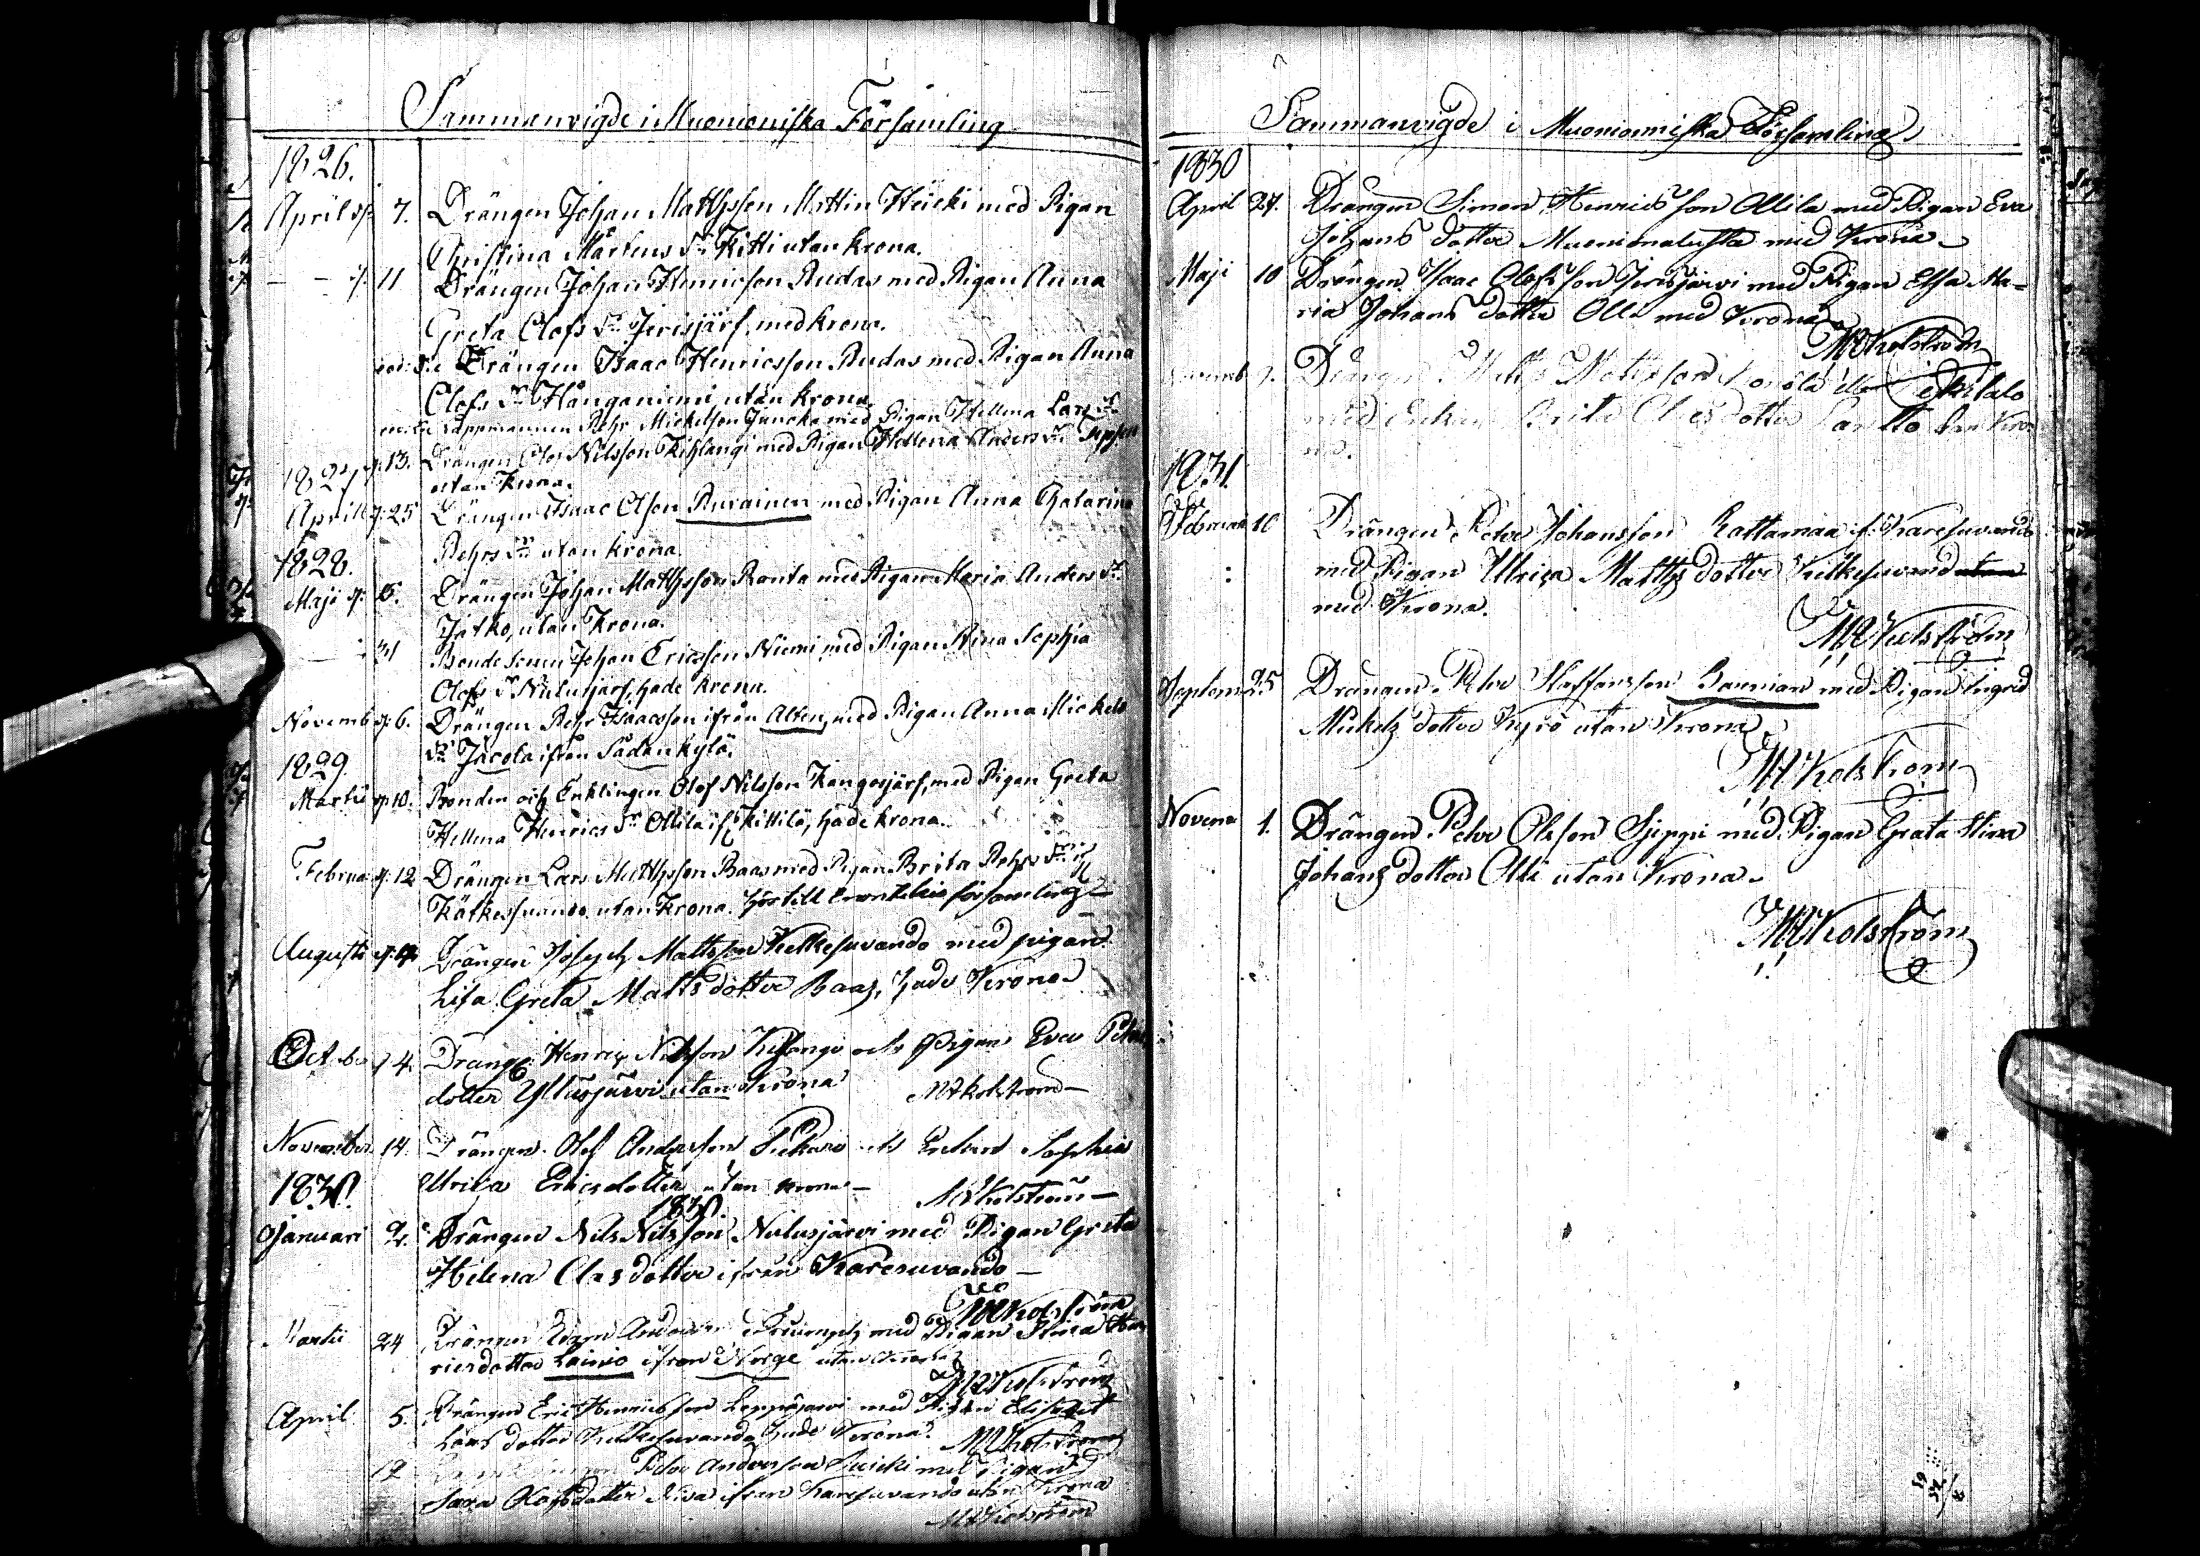 Sammanvigde i Muonioniska Församling
1826.
April d. 7. Drängen Johan Matthsson Mattin Heicki med Pigan
Christina Mårtens Dr Kitti utan krona.
11 Drängen Johan Henricson Rudas med Pigan Anna
Greta Olofs Dr Jerisjärf, med krona.
eod. die Drängen Isaac Henricsson Rudas med Pigan Anna
Olofs Dr Hånganimi, utan krona.
Lappmannen Pehr Mickelson Juncka med Pigan Hellena Lars Dr
1827 d. 13. Drängen Olof Nilsson Kihlangi med Pigan Hellena Anders Dr
utan krona.
April d. 25 Drängen Isaac Olson Rurainen med Pigan Anna Chatarina
Pehrs Dr utan krona.
1828.
Maji d. 5. Drängen Johan Matthsson Ranta med Pigan Maria Anders Dr
Jatko, utan Krona.
31 Bonde sonen Johan Ericsson Niemi med Pigan Stina Sophia
Olofs Dr Nulusjärf, hade krona.
Novemb d. 6. Drängen Pehr Isaacsson ifrån Alten, med Pigan Anna Mickels
Dr Jacola ifrån Sådankylä.
1829.
Martii d. 10. Bonden och Enklingen Olof Nilsson Kangosjärf, med Pigan Greta
Hellena Henrics Dr Ollila if. Kittilä, hade krona.
Februa d. 12 Drängen Lars Matthsson Baas med Pigan Brita Pehrs Dr if
Kätkesuando utan Krona. församling
Augusti d. Drängen Joseph Mattsson Ketkesuvando med pigan
Lisa Greta Matts dotter Baas, hade Krona
Octob d 4. Dräng. Henric Nilsson Kihlangi och Pigan Eva Peters
dotter Ylitusjärvi utan Krona MAKolström
November 14. Drängen Olof Andersson och Enkan Sophia
Ulrica Ericsdotter utan krona MAKolström
1830.
1830.
Januari 2. Drängen Nils Nilsson Nulusjärvi med Pigan Greta
Helena Olas dotter ifrån Karesuvando
MAKolström
Martii 24 Drängen med Pigan Stina Hen
ricsdotter Lainio ifrån Norge utan Krona
MAKolström
April 5. Drängen Eric Henricsson Leppäjärvi med Pigan Elisabet
Lars dotter Ketkesuvando hade Krona. MAKolström
12 Petter Andersson med Pigan
Sara Olofsdotter ifrån Karesuvando utan Krona
MAKolström
Sammanvigde i Muonioniska Församling
1830
April 27. Drängen Simon Henricsson Ollila med Pigan Eva
Johans dotter Muonionalusta med Krona
Maji 10 Drängen Isaac Olofsson Jerisjärvi med Pigan Elsa Ma-
ria Johans dotter Olli med Krona
MAKolström
Drängen
med Enkan Brita dotter utan Kro-
na.
1831.
Februari 10 Drängen Peter Johansson Rattamaa if. Karesuvando
med Pigan Ulrica Matths dotter Kätkesuvand utan
med Krona.
MAKolström
Septem 25 Drängen Peter Staffansson med Pigan Sigrid
Mickels dotter Kyrö utan Krona
MAKolström
Novem 1. Drängen Peter Olsson Sjeppi med Pigan Greta Stina
Johans dotter Olli utan Krona
MAKolström